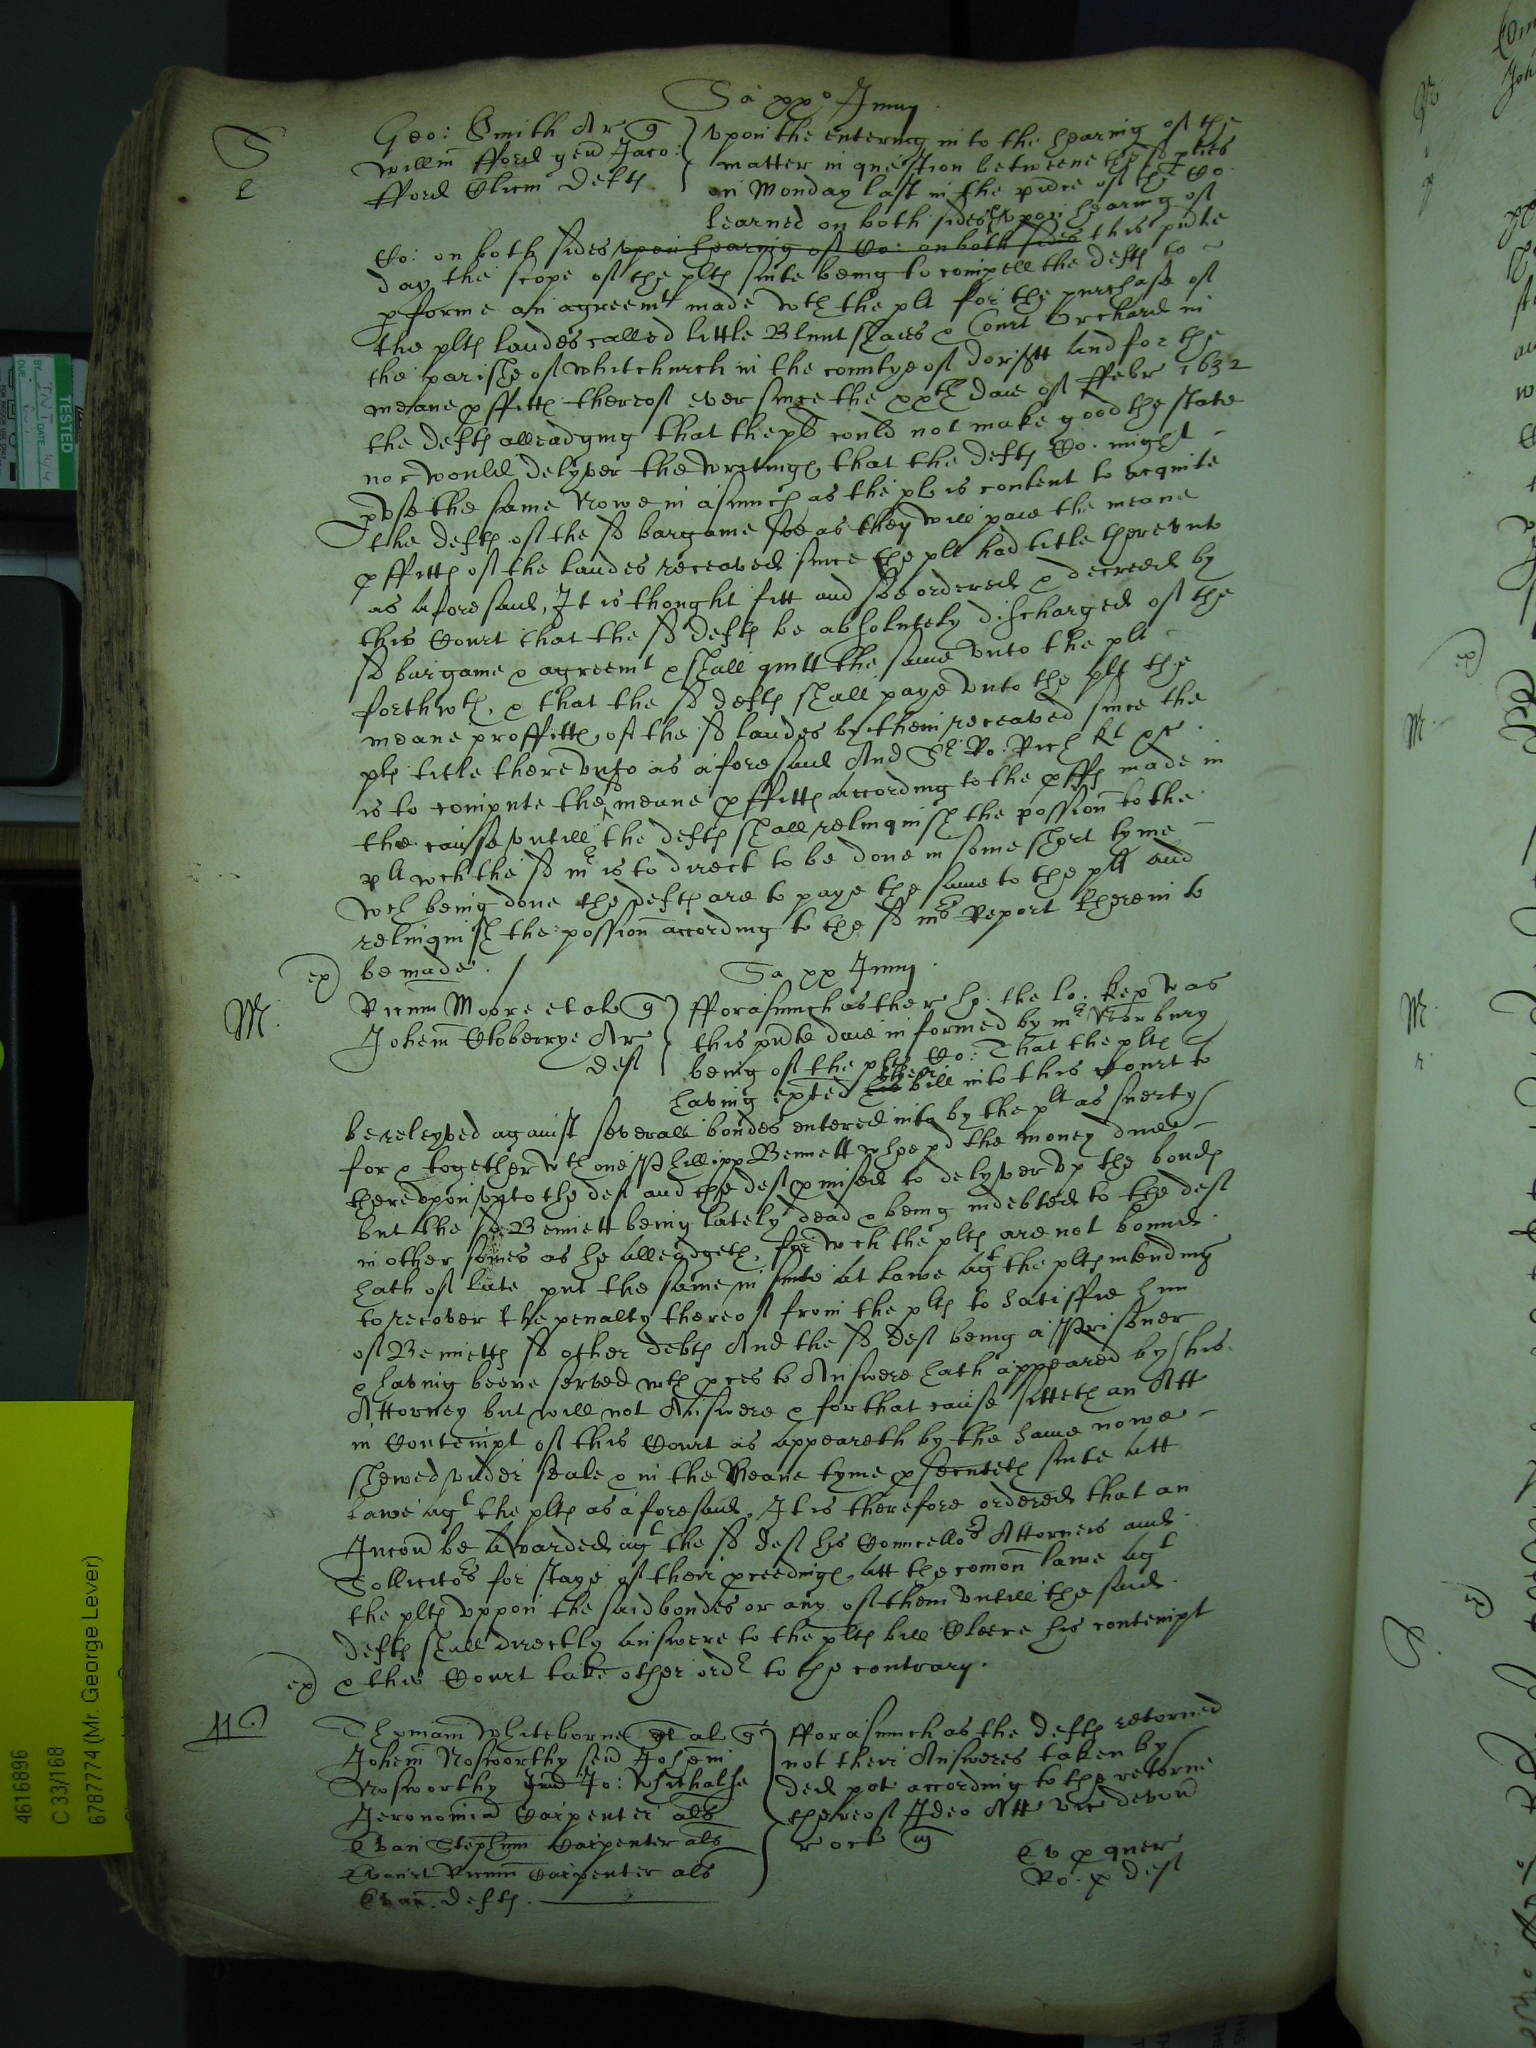 Sa xxo Junij
S
Geo: Smith Ar q
Willm fford gen Jaco:
fford Clicm Defts
Upon the entering into the hearing of the
matter in question betweene the sd pties
on Monday last in the pnce of the Co:
learned on both sides & upon hearing of
Co: on both sides upon hearing of Co: on both sides this pnte
day the scope of the plts suite being to compell the defts to
pforme an agreemt made wth the plt for the purchase of
the plts landes called little Blunt shaies & Court Orchard in
the parishe of Whitchurch in the countye of Dorsett And for the
meane pffitts thereof ever since the xxth daie of ffebr 1632
the defts alleadging that the plt could not make good the state
nor would delyver the writings, that the defts Co. might
pvse the same Nowe in asmuch as the plt is content to acquite
the defts of the sd bargaine soe as they will paie the meane
pffitts of the landes receaved since the plt had title thereunto
as aforesaid, It is thought fitt and soe ordered & decreed by
this Court that the sd defts be absolutely discharged of the
sd bargaine & agreemt & shall quitt the same unto the plt
forthwth, & that the sd defts shall paye unto the plt the
meane proffitts of the sd landes by them receaved since the
plts title thereunto as aforesaid And Sr Ro: Rich kt &c
is to compute the sd meane pffitts according to the pffs made in
the causse untill the defts shall relinquish the possion to the
plt wch the sd mr is to direct to be done in some short tyme
wch being done the defts are to paye the same to the plt and
relinquish the possion according to the sd mrs Report therein to
be made.
ex
Sa xx Junij
M
Ricum Moore et al q
Johem Cloberrye Ar
Deft
fforasmuch as the r. hp. the lo: kep was
this pnte daie informed by mr Norbury
being of the plts Co: That the plts
having exhted his their bill into this Court to
be releyved against severall bondes entered into by the plt as suerty
for & together wth one Phillipp Bennett whoe pd the money due
thereupon unto the deft and the deft pmised to delyver up the bonds
but the sd Bennett being lately dead & being indebted to the deft
in other somes as he alleadgeth, for wch the plts are not bound
hath of late put the same in suite at lawe agt the plts intending
to recover the penalty thereof from the plts to satisffie him
of Bennetts sd other debts And the sd Deft being a Prisoner
& having beene served wth pces to Answere hath appeared by his
Attorney but will not Answere & for that cause sitteth an Att
in Contempt of this Court as appeareth by the same nowe
shewed under seale & in the Meane tyme psecuteth suite att
Lawe agt the plts as aforesaid, It is therefore ordered that an
Iniuncon be Awarded agt the sd Deft his Councellors Attorneis and
Sollicitors for staye of their pceedings att the comon Lawe agt
the plts uppon the said bondes or any of them untill the said
Defts shall directly answere to the plts bill Cleere his contempt
& this Court take other ordr to the contrary.
ex
Thomam Whiteborne et al q
Johem Nosworthy sen Johem
Nosworthy Jun Jo: Whithalse
Jeronomiu Carpenter als
Evan Stephum Carpenter als
Evans et Ricum Carpenter als
Evan. Defts.
fforasmuch as the Defts retorned
not their Answeres taken by
Ded pot according to the retorne
thereof Ideo Att vic Devon
r oct
Ev p quer
Ro. p deft
TESTED
BY: TNT DATE
DUE
4616896
C 33/168
6787774 (Mr. George Lever)